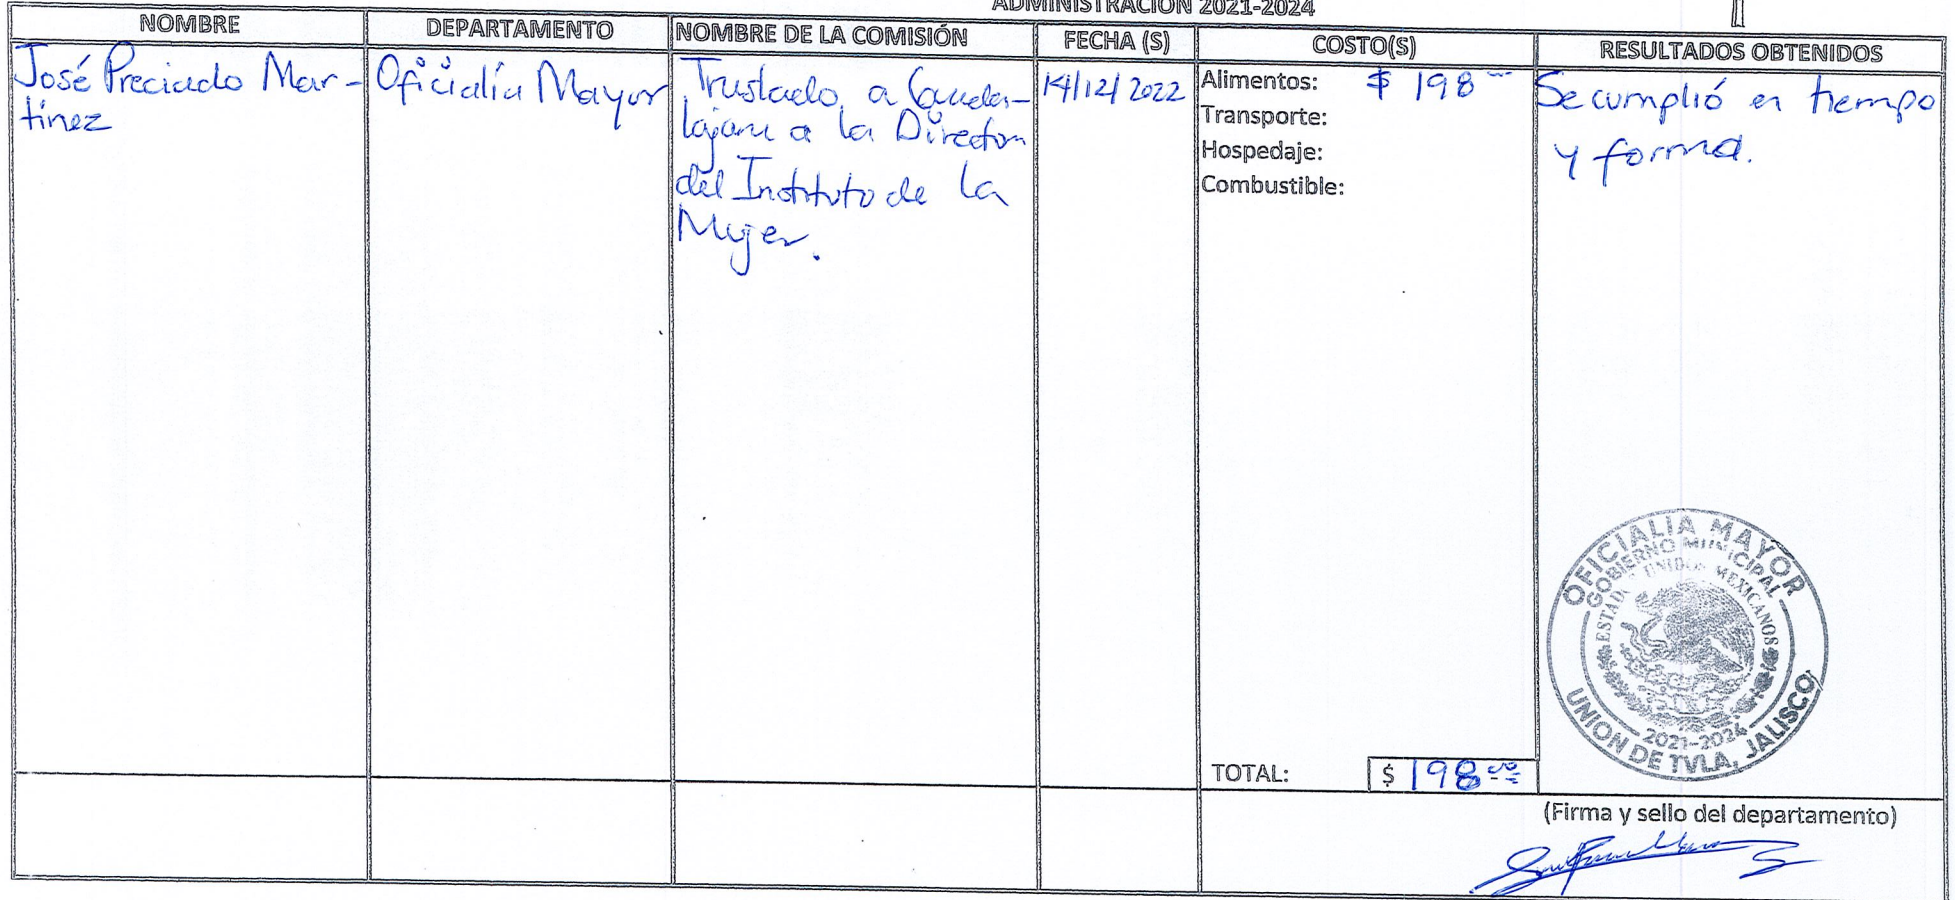 ADMINISTRACIÓN 2021-2024
NOMBRE
DEPARTAMENTO
NOMBRE DE LA COMISIÓN
FECHA (S)
COSTO(S)
RESULTADOS OBTENIDOS
José Preciado Mar-
tínez
Oficialía Mayor
Traslado a Guada-
lajara a la Directora
del Instituto de la
Mujer.
14/12/2022
Alimentos: $ 198
Transporte:
Hospedaje:
Combustible:
Se cumplió en tiempo
y forma.
OFICIALIA MAYOR
GOBIERNO MUNICIPAL
ESTADOS UNIDOS MEXICANOS
2021-2024
UNION DE TULA, JALISCO
TOTAL: $ 198
(Firma y sello del departamento)